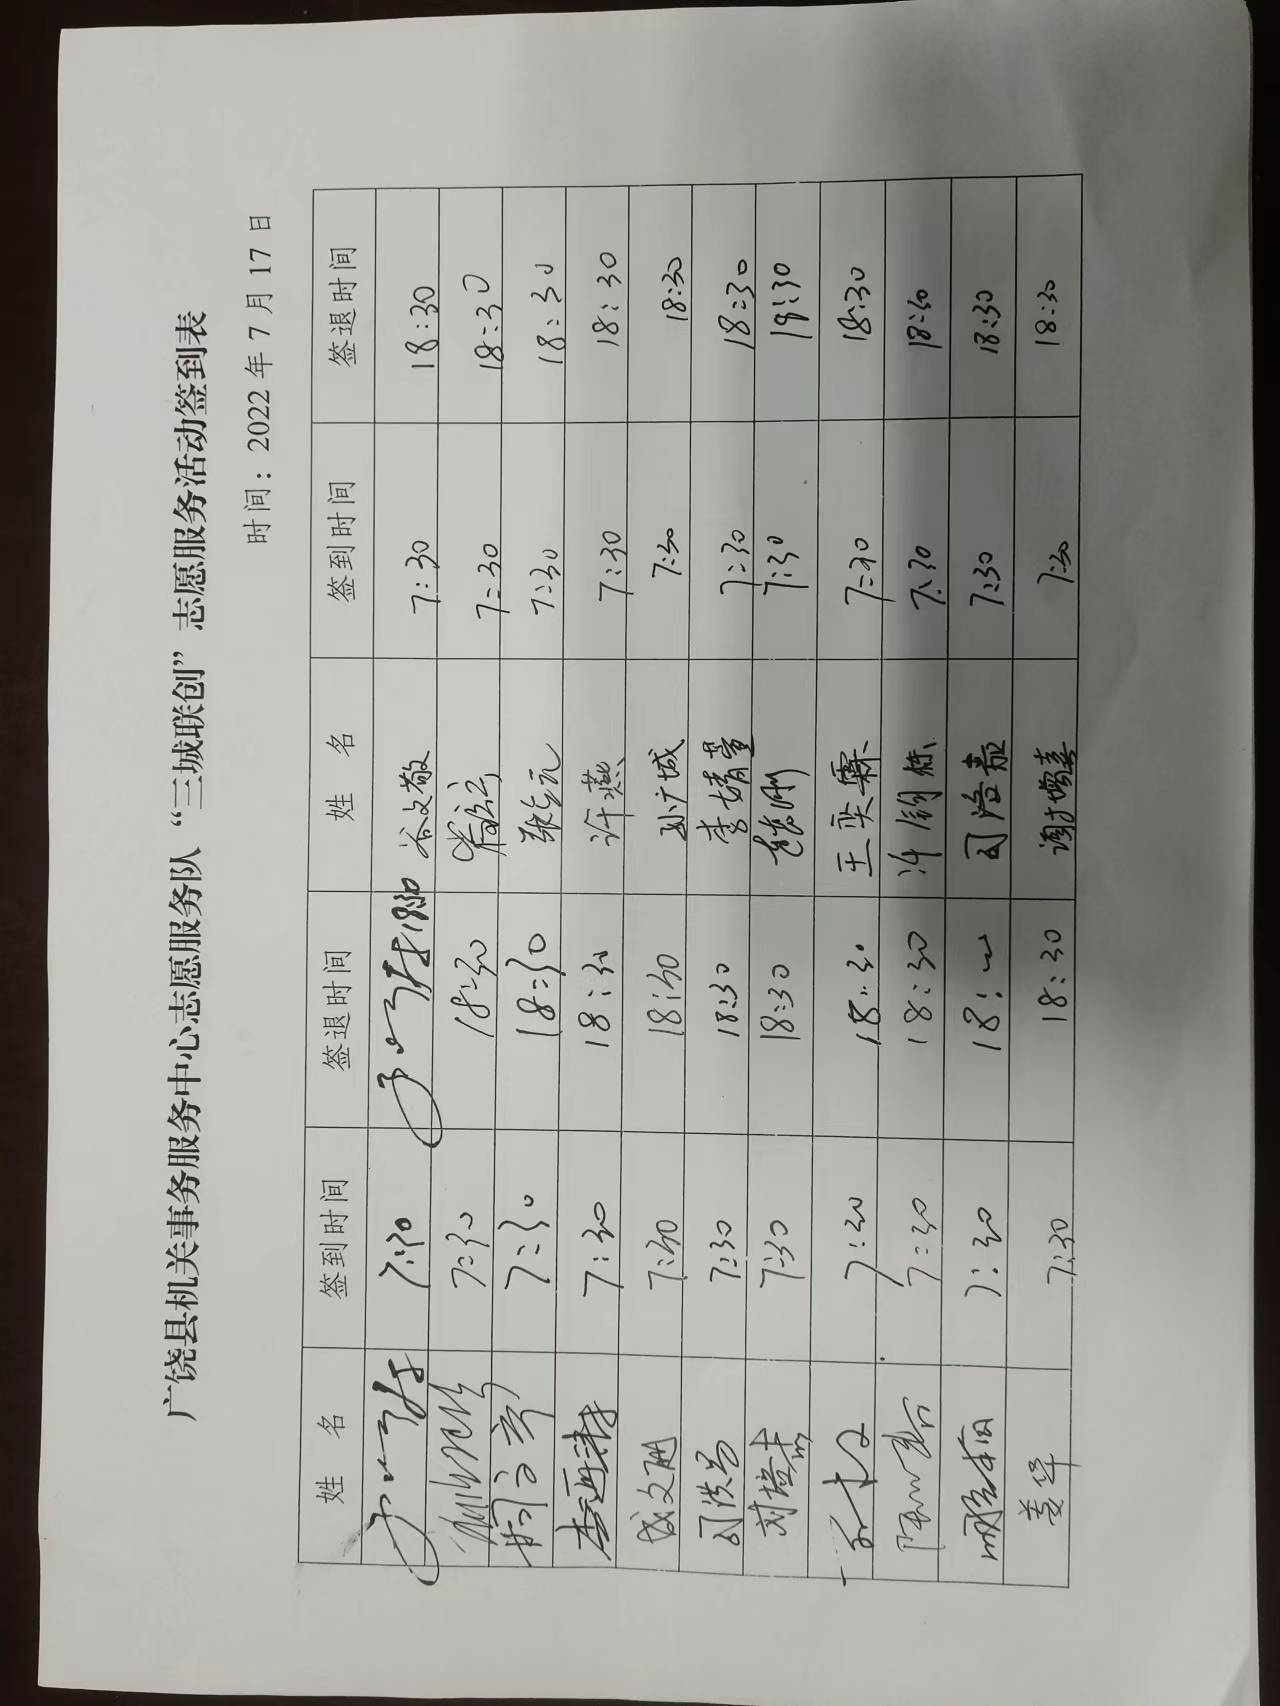 广饶县机关事务服务中心志愿服务队“三城联创”志愿服务活动签到表
时间：2022年7月17日
姓 名 签到时间 签退时间 姓 名 签到时间 签退时间
7:30 18:30 谷文敬 7:30 18:30
7:30 18:30 7:30 18:30
7:30 18:30 7:30 18:30
7:30 18:30 许燕 7:30 18:30
成文刚 7:30 18:30 孙广城 7:30 18:30
司洪昌 7:30 18:30 李婧萱 7:30 18:30
刘培杰 7:30 18:30 7:30 18:30
7:30 18:30 王奕霖 7:30 18:30
7:30 18:30 许炳栋 7:30 18:30
7:30 18: 司浩嘉 7:30 18:30
姜华 7:30 18:30 谢增喜 7:30 18:30